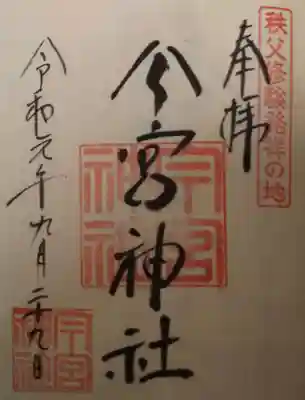 秩父修験発祥の地
奉拝
今宮神社
令和元年九月二十九日
今宮神社
今宮神社